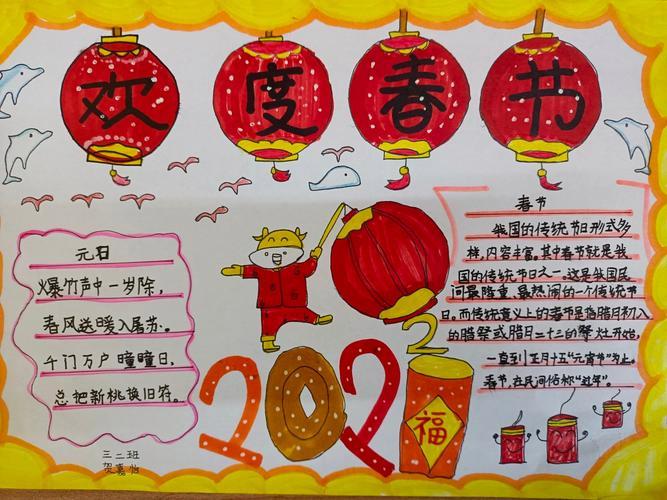 欢度春节
元日
爆竹声中一岁除,
春风送暖入屠苏。
千门万户曈曈日,
总把新桃换旧符。
三二班
贺嘉怡
春节
我国的传统节日形式多
样,内容丰富,其中春节就是我
国的传统节日之一,这是我国民
间最隆重、最热闹的一个传统节
日。而传统意义上的春节是指腊月初八
的腊祭或腊月二十三的祭灶开始,
一直到正月十五“元宵节”为止。
春节,在民间俗称“过年”。
2022
福